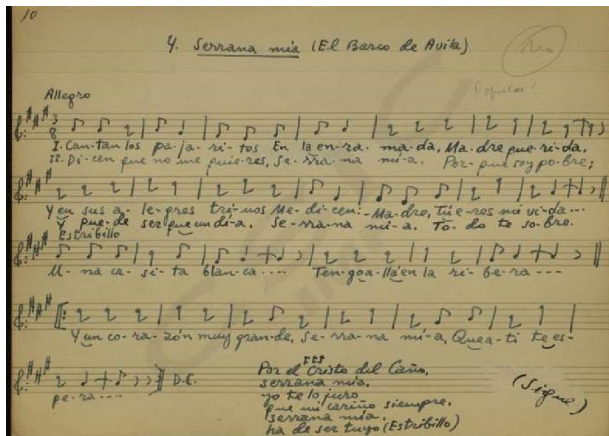 10
4. Serrana mía (El Barco de Avila)
Popular?
Allegro
3
8
I. Can-tan los pa-ja-ri-tos En la en-ra-ma-da, Ma-dre que-ri-da,
II. Di-cen que no me quie-res, Se-rra-na mí-a. Por-que soy po-bre;
Y en sus a-le-gres tri-nos Me-di-cen:- Madre, Tú e-res mi vi-da...
Y pue-de ser que un dí-a, Se-rra-na mí-a. To-do te so-bre.
Estribillo
U-na ca-si-ta blan-ca.... Ten-go a-llá en la ri-be-ra----
Y un co-ra-zón muy gran-de, Se-rra-na mí-a, Que a-ti te es-
pe-ra---- D.C.
Por el Cristo del Caño,
serrana mía,
yo te lo juro
que mi cariño siempre,
serrana mía,
ha de ser tuyo (Estribillo)
(Sigue)